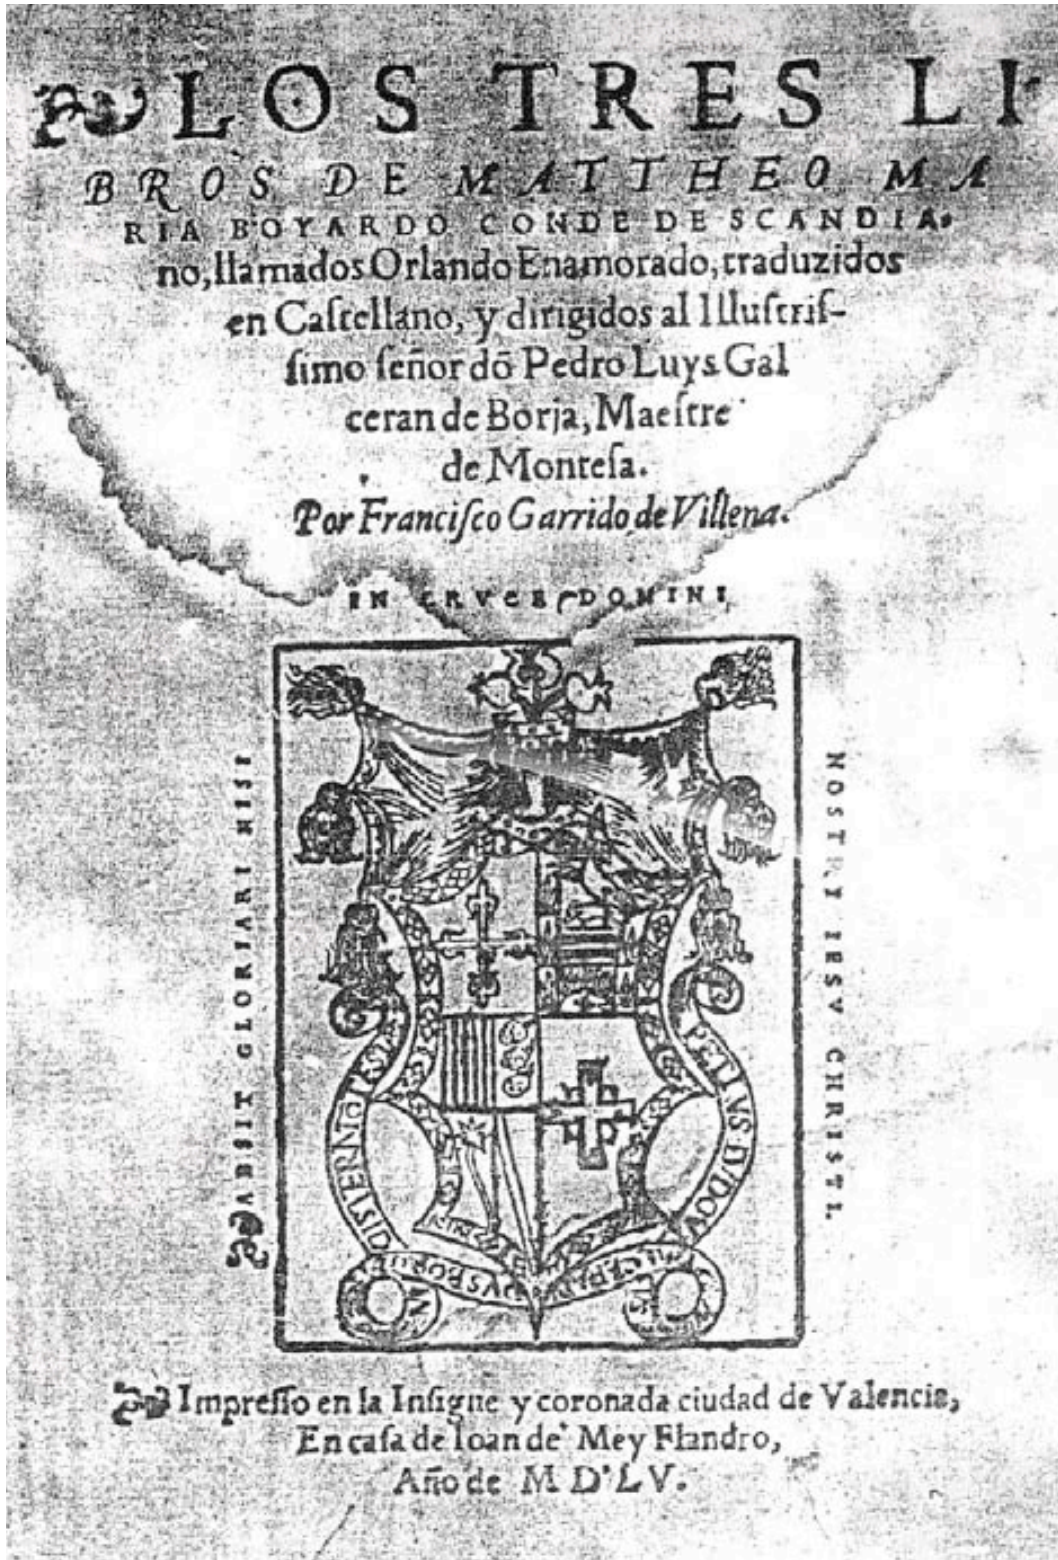 LOS TRES LI
BROS DE MATTHEO MA
RIA BOYARDO CONDE DE SCANDIA-
no, llamados Orlando Enamorado, traduzidos
en Caſtellano, y dirigidos al Illuſtriſ-
ſimo ſeñor dõ Pedro Luys Gal
ceran de Borja, Maeſtre
de Monteſa.
Por Franciſco Garrido de Villena.
IN CRVCE DOMINI
ABSIT GLORIARI NISI
NOSTRI IESV CHRISTI.
Impreſſo en la Inſigne y coronada ciudad de Valencia,
En caſa de Ioan de Mey Flandro,
Año de M D LV.